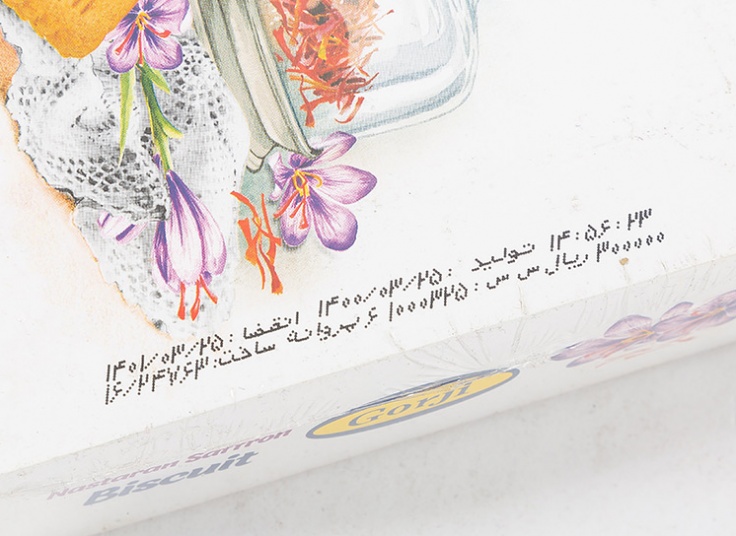 ۱۴:۵۶:۲۳ تولید: ۱۴۰۰/۰۳/۲۵ انقضا: ۱۴۰۱/۰۳/۲۵
۳۰۰۰۰۰ ریال س س: ۱۰۰۰۳۲۵ ۶ پروانه ساخت: ۱۶/۲۴۷۶۳
Gorji
Nastaran Saffron
Biscuit